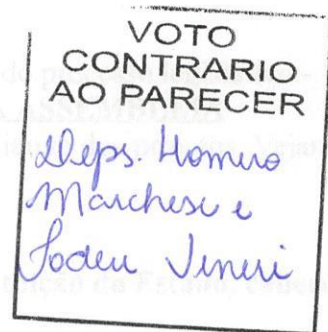 VOTO
CONTRARIO
AO PARECER
Deps. Homero
Marchese e
Tadeu Veneri